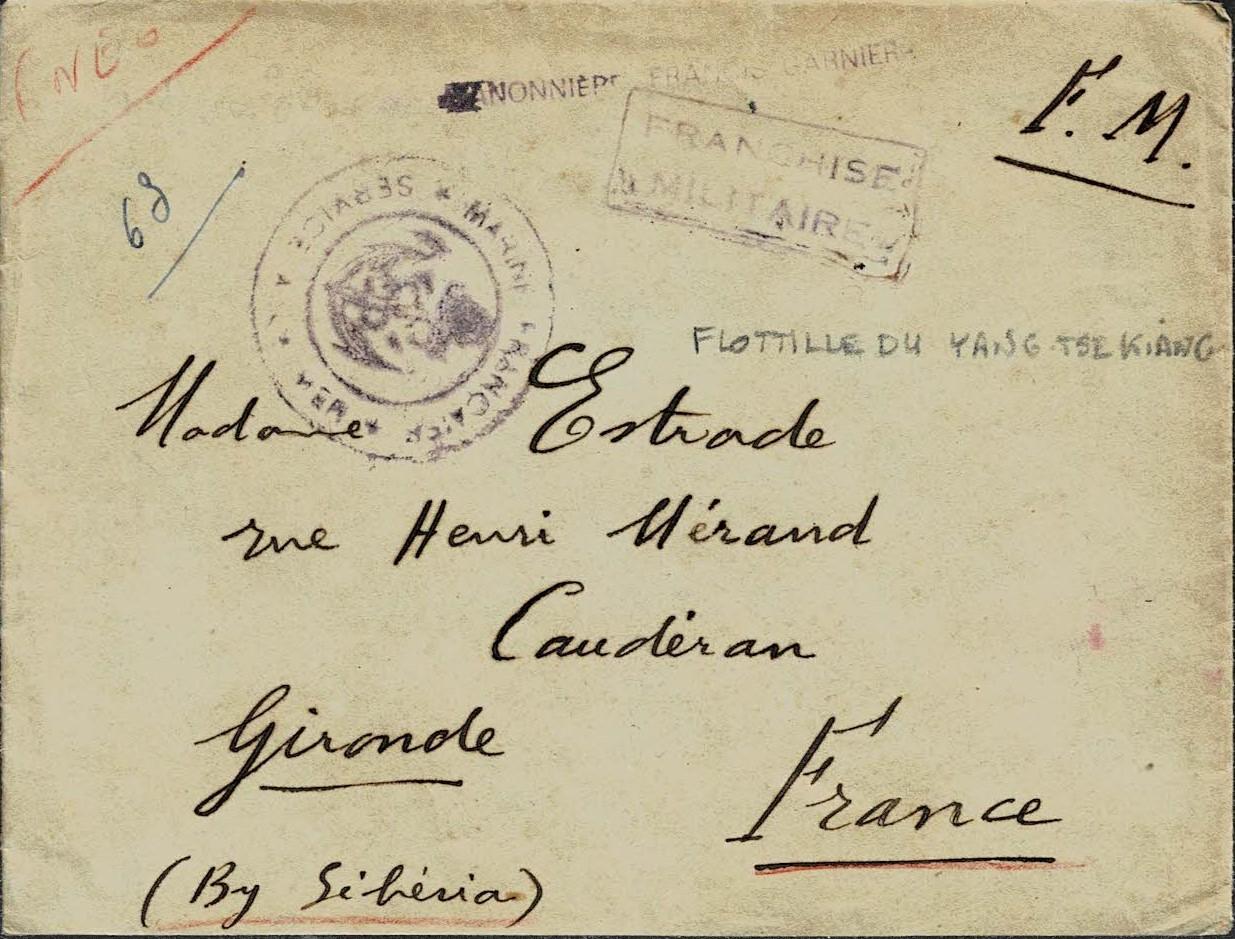 FRANCIS GARNIER
F. M.
FRANCHISE
MILITAIRE
68
MARINE FRANÇAISE ★ SERVICE À LA MER ★
FLOTTILLE DU YANG TSE KIANG
Madame Estrade
rue Henri Mérand
Caudéran
Gironde
France
(By Sibéria)